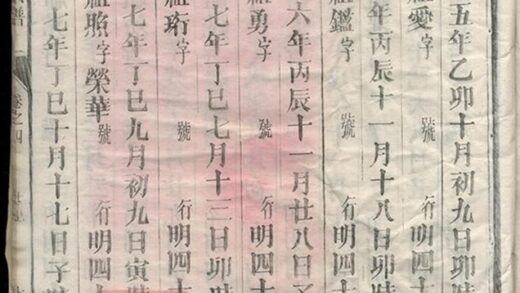 五年乙卯十月初九日卯時
祖愛字 號 行明四十
年丙辰十一月十八日卯時
祖鑑字 號 行明四十
六年丙辰十一月廿八日子
祖勇字 號 行明四十
七年丁巳七月十三日卯時
祖珩字 號 行明四十
七年丁巳九月初九日寅時
祖照字榮華號 行明四十
七年丁巳十月十七日子時
譜 卷之四